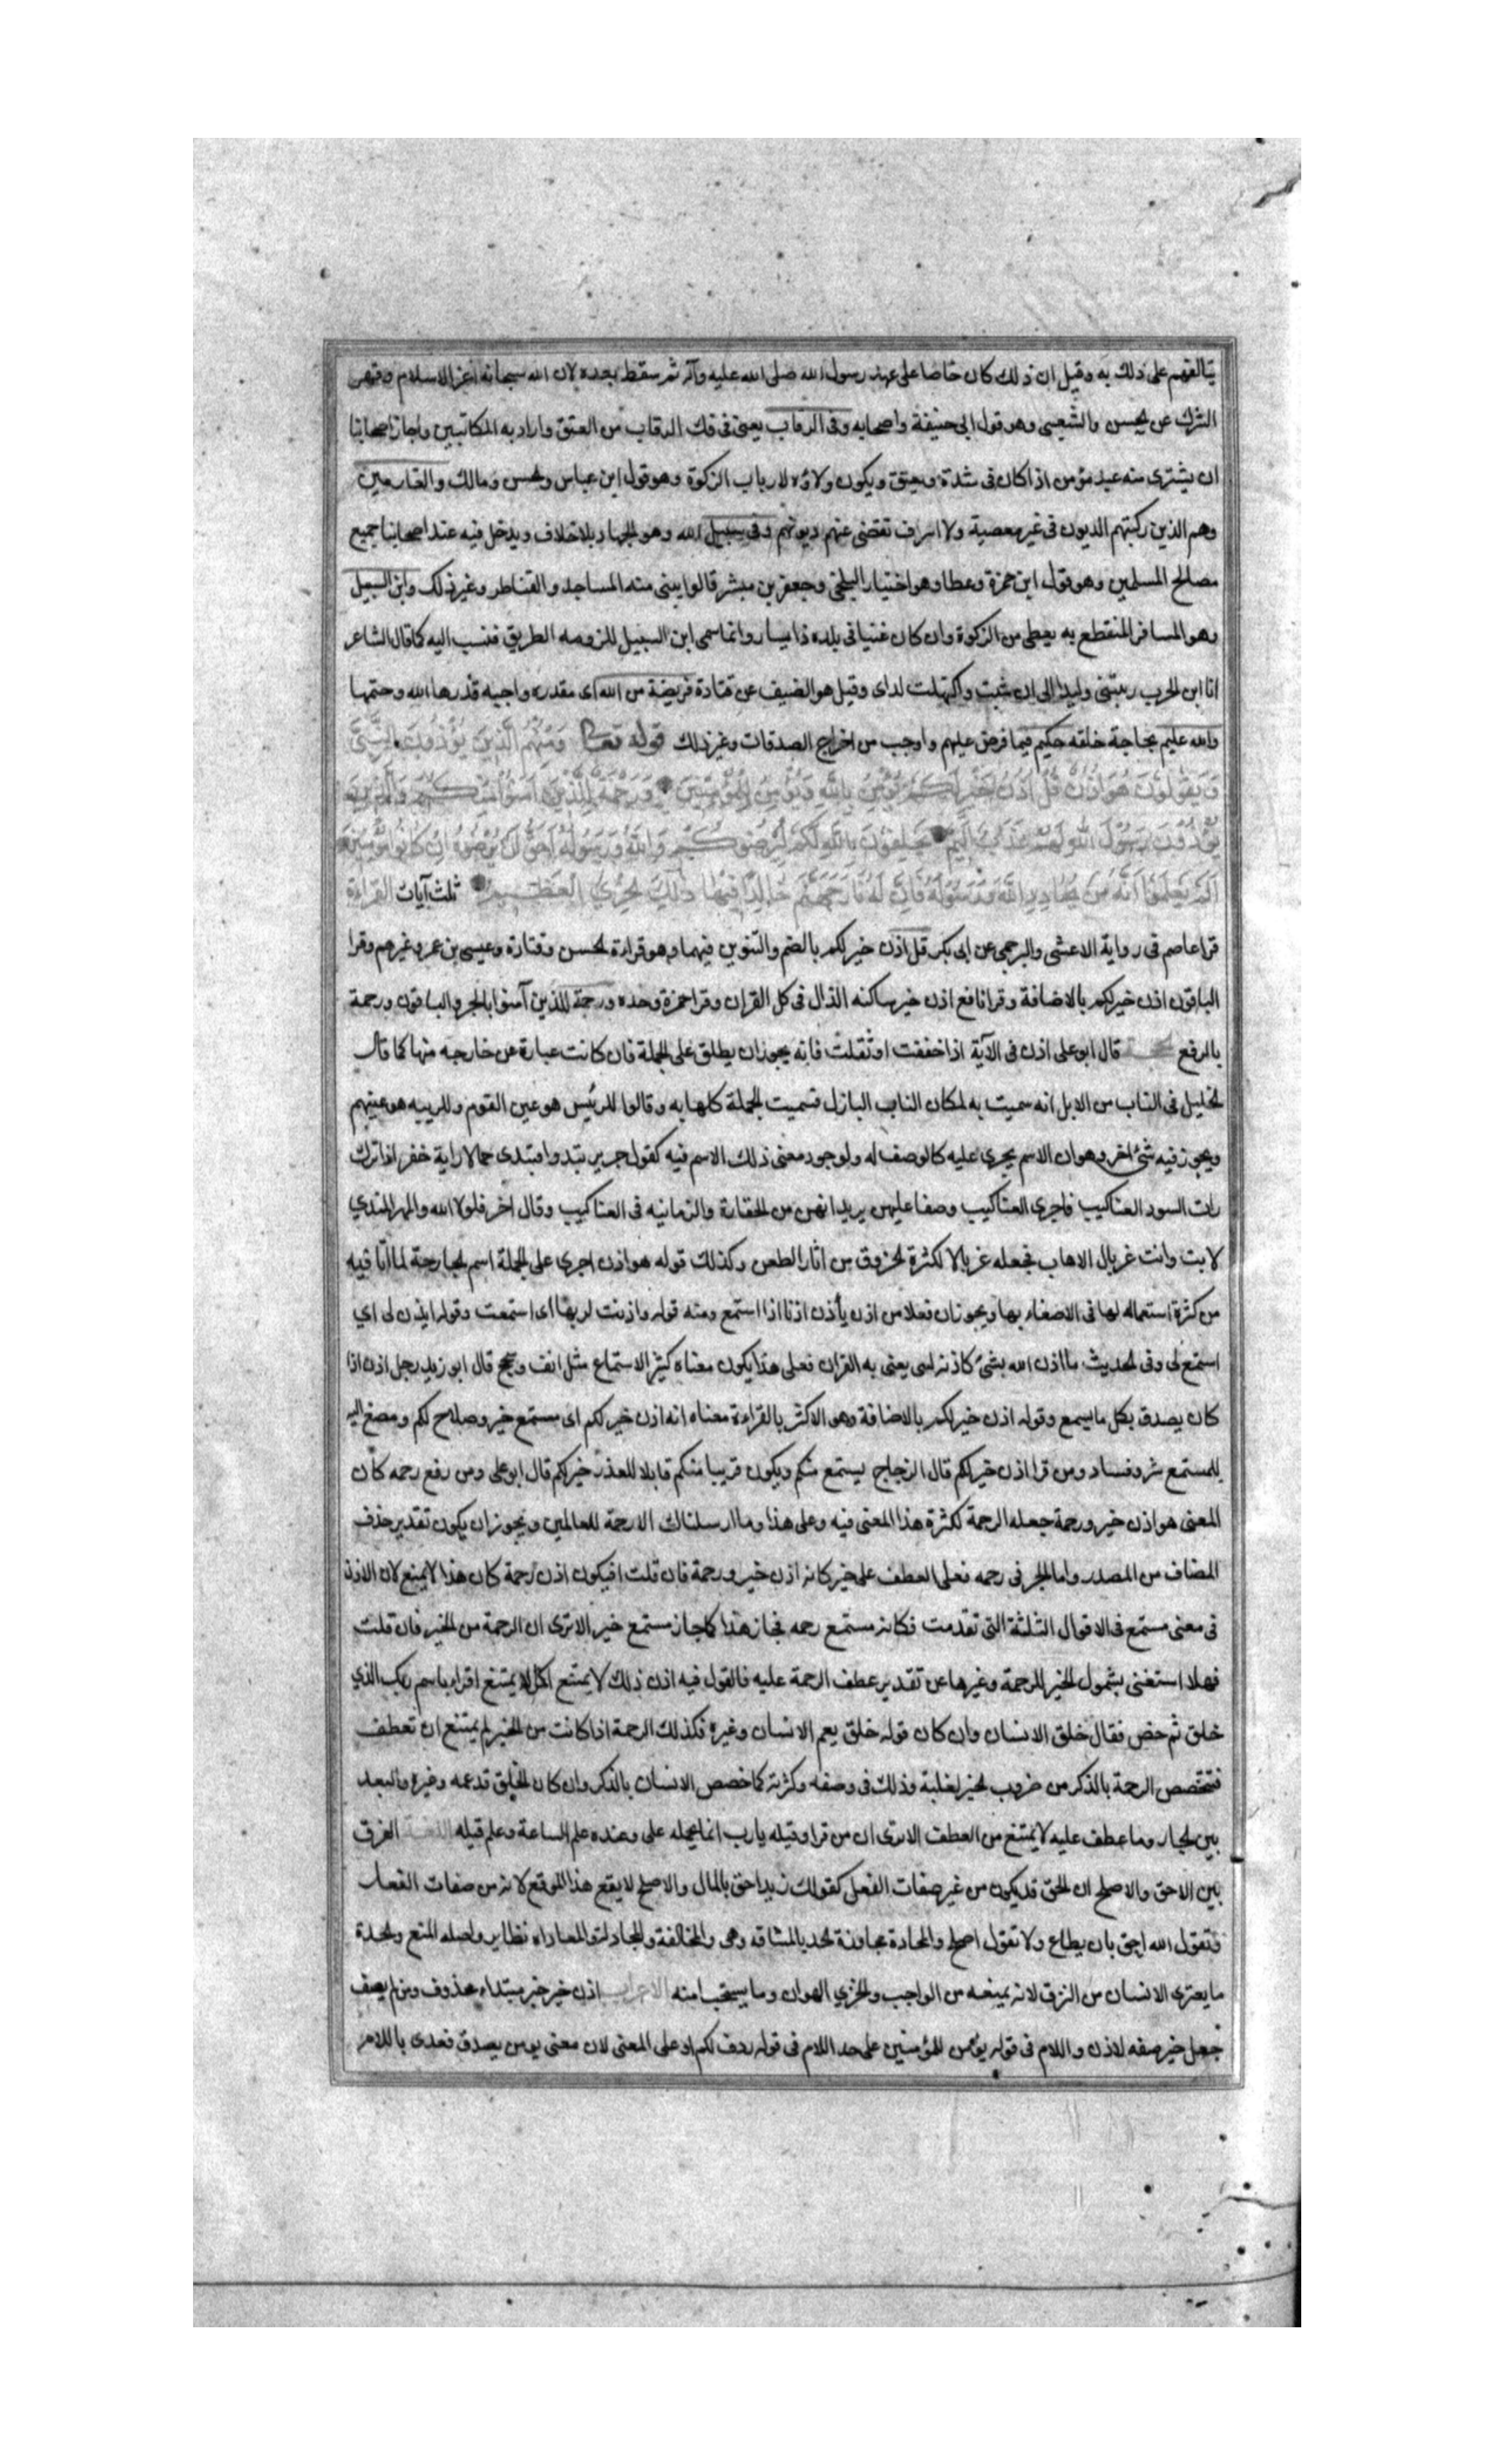 يتالفهم على ذلك به وقيل ان ذلك كان خاصا على عهد رسول الله صلى الله عليه وآله ثم سقط بعده لان الله سبحانه اعز الاسلام وقهر
الشرك عن الحسن والشعبى وهو قول ابى حنيفة واصحابه وفى الرقاب يعنى فى فك الرقاب من العتق واراد به المكاتبين واجاز اصحابنا
ان يشترى منه عبد مؤمن اذا كان فى شدة ويعتق ويكون ولاؤه لارباب الزكوة وهو قول ابن عباس والحسن ومالك والغارمين
وهم الذين ركبتهم الديون فى غير معصية ولا اسراف تقضى عنهم ديونهم وفى سبيل الله وهو الجهاد بلا خلاف ويدخل فيه عند اصحابنا جميع
مصالح المسلمين وهو قول ابن حمزة وعطا وهو اختيار البلخى وجعفر بن مبشر قالوا يبنى منه المساجد والقناطر وغير ذلك وابن السبيل
وهو المسافر المنقطع به يعطى من الزكوة وان كان غنيا فى بلده ذا يسار وانما سمى ابن السبيل للزومه الطريق فنسب اليه كما قال الشاعر
انا ابن الحرب ربتنى وليدا الى ان شبت واكتهلت لداى وقيل هو الضيف عن قتادة فريضة من الله اى مقدره واجبه قدرها الله وحتمها
والله عليم بحاجة خلقه حكيم فيما فرض عليهم واوجب من اخراج الصدقات وغير ذلك قوله تعالى ومنهم الذين يؤذون النبى
ويقولون هو اذن قل اذن خير لكم يؤمن بالله ويؤمن للمؤمنين ورحمة للذين آمنوا منكم والذين
يؤذون رسول الله لهم عذاب اليم يحلفون بالله لكم ليرضوكم والله ورسوله احق ان يرضوه ان كانوا مؤمنين
الم يعلموا انه من يحادد الله ورسوله فان له نار جهنم خالدا فيها ذلك الخزي العظيم ثلث آيات القراءة
قرا عاصم فى رواية الاعشى والبرجمى عن ابى بكر قل اذن خير لكم بالضم والتنوين فيهما وهو قراءة الحسن وقتادة وعيسى بن عمر وغيرهم وقرا
الباقون اذن خير لكم بالاضافة وقرا نافع اذن خير ساكنه الذال فى كل القران وقرا حمزة وحده ورحمة للذين آمنوا بالجر والباقون ورحمة
بالرفع الحجة قال ابو على اذن فى الآية اذا خففت او ثقلت فانه يجوز ان يطلق على الجملة فان كانت عبارة عن خارجه منها كما قال
الخليل فى الناب من الابل انه سميت به لمكان الناب البازل فسميت الجملة كلها به وقالوا للرئيس هو عين القوم وللربيه هو عينهم
ويجوز فيه شئ اخر وهو ان الاسم يجرى عليه كالوصف له ولوجود معنى ذلك الاسم فيه كقول جرير تبدو امبتدى جمالا راية خفر اذا ترك
رات السود العناكيب فاجرى العناكيب وصفا عليهن يريد انهن من الحقارة والزمانيه فى العناكيب وقال اخر فلولا الله والمهر المتدي
لابت وانت غربال الاهاب فجعله غربالا لكثرة الخروق من اثار الطعن وكذلك قوله هو اذن اجرى على الجملة اسم الجارحة لما اتا فيه
من كثرة استعماله لها فى الاصغاء بها ويجوز ان فعلا من اذن يأذن اذنا اذا استمع ومنه قوله واذنت لربها اى استمعت وقوله ايذن لى اي
استمع لى وفى الحديث ما اذن الله بشئ كاذنه لنبى يعنى به القران فعلى هذا يكون معناه كثير الاستماع مثل انف وسجح قال ابو زيد رجل اذن اذا
كان يصدق بكل ما يسمع وقوله اذن خير لكم بالاضافة وهو الاكثر بالقراءة معناه انه اذن خير لكم اى مستمع خير وصلاح لكم ومصغ اليه
لا مستمع شر وفساد ومن قرا اذن خير لكم قال الزجاج يستمع منكم ويكون قريبا منكم قابلا للعذر خير لكم قال ابو على ومن رفع رحمه كان
المعنى هو اذن خير ورحمة جعله الرحمة لكثرة هذا المعنى فيه وعلى هذا وما ارسلناك الا رحمة للعالمين ويجوز ان يكون تقدير حذف
المضاف من المصدر واما الجر فى رحمه فعلى العطف على خير كانه اذن خير ورحمة فان قلت افيكون اذن رحمة كان هذا لا يمتنع لان الاذن
فى معنى مستمع فى الاقوال الثلثة التى تقدمت فكانه مستمع رحمه فجاز هذا كما جاز مستمع خير الا ترى ان الرحمة من الخير فان قلت
فهلا استغنى بشمول الخير للرحمة وغيرها عن تقدير عطف الرحمة عليه فالقول فيه اذن ذلك لا يمتنع كما لا يمتنع اقرا باسم ربك الذي
خلق ثم خص فقال خلق الانسان وان كان قوله خلق يعم الانسان وغيره فكذلك الرحمة اذا كانت من الخير لم يمتنع ان تعطف
فتخصص الرحمة بالذكر من ضروب الخير لغلبة وذلك فى وصفه وكثرته كما خصص الانسان بالذكر وان كان الخلق قد عمه وغيره والبعد
بين الجار وما عطف عليه لا يمتنع من العطف الا ترى ان من قرا وقيله يارب انما يحمله على وعنده علم الساعة وعلم قيله اللغة الفرق
بين الاحق والاصلح ان الحق قد يكون من غير صفات الفعل كقولك زيد احق بالمال والاصلح لا يقع هذا الموقع لانه من صفات الفعل
وتقول الله احق بان يطاع ولا تقول اصلح والمحادة مجاوزة الحد بالمشاقه وهى والمخالفة والمجادلة والمعاداة نظاير واصله المنع والمحدة
ما يعترى الانسان من النزق لانه يمنعه من الواجب والخزي الهوان وما يستحيا منه الاعراب اذن خير خبر مبتداء محذوف ومن لم يصف
جعل خير صفه لاذن واللام فى قوله يؤمن للمؤمنين على حد اللام فى قوله ردف لكم او على المعنى لان معنى يومن يصدق فعدى باللام